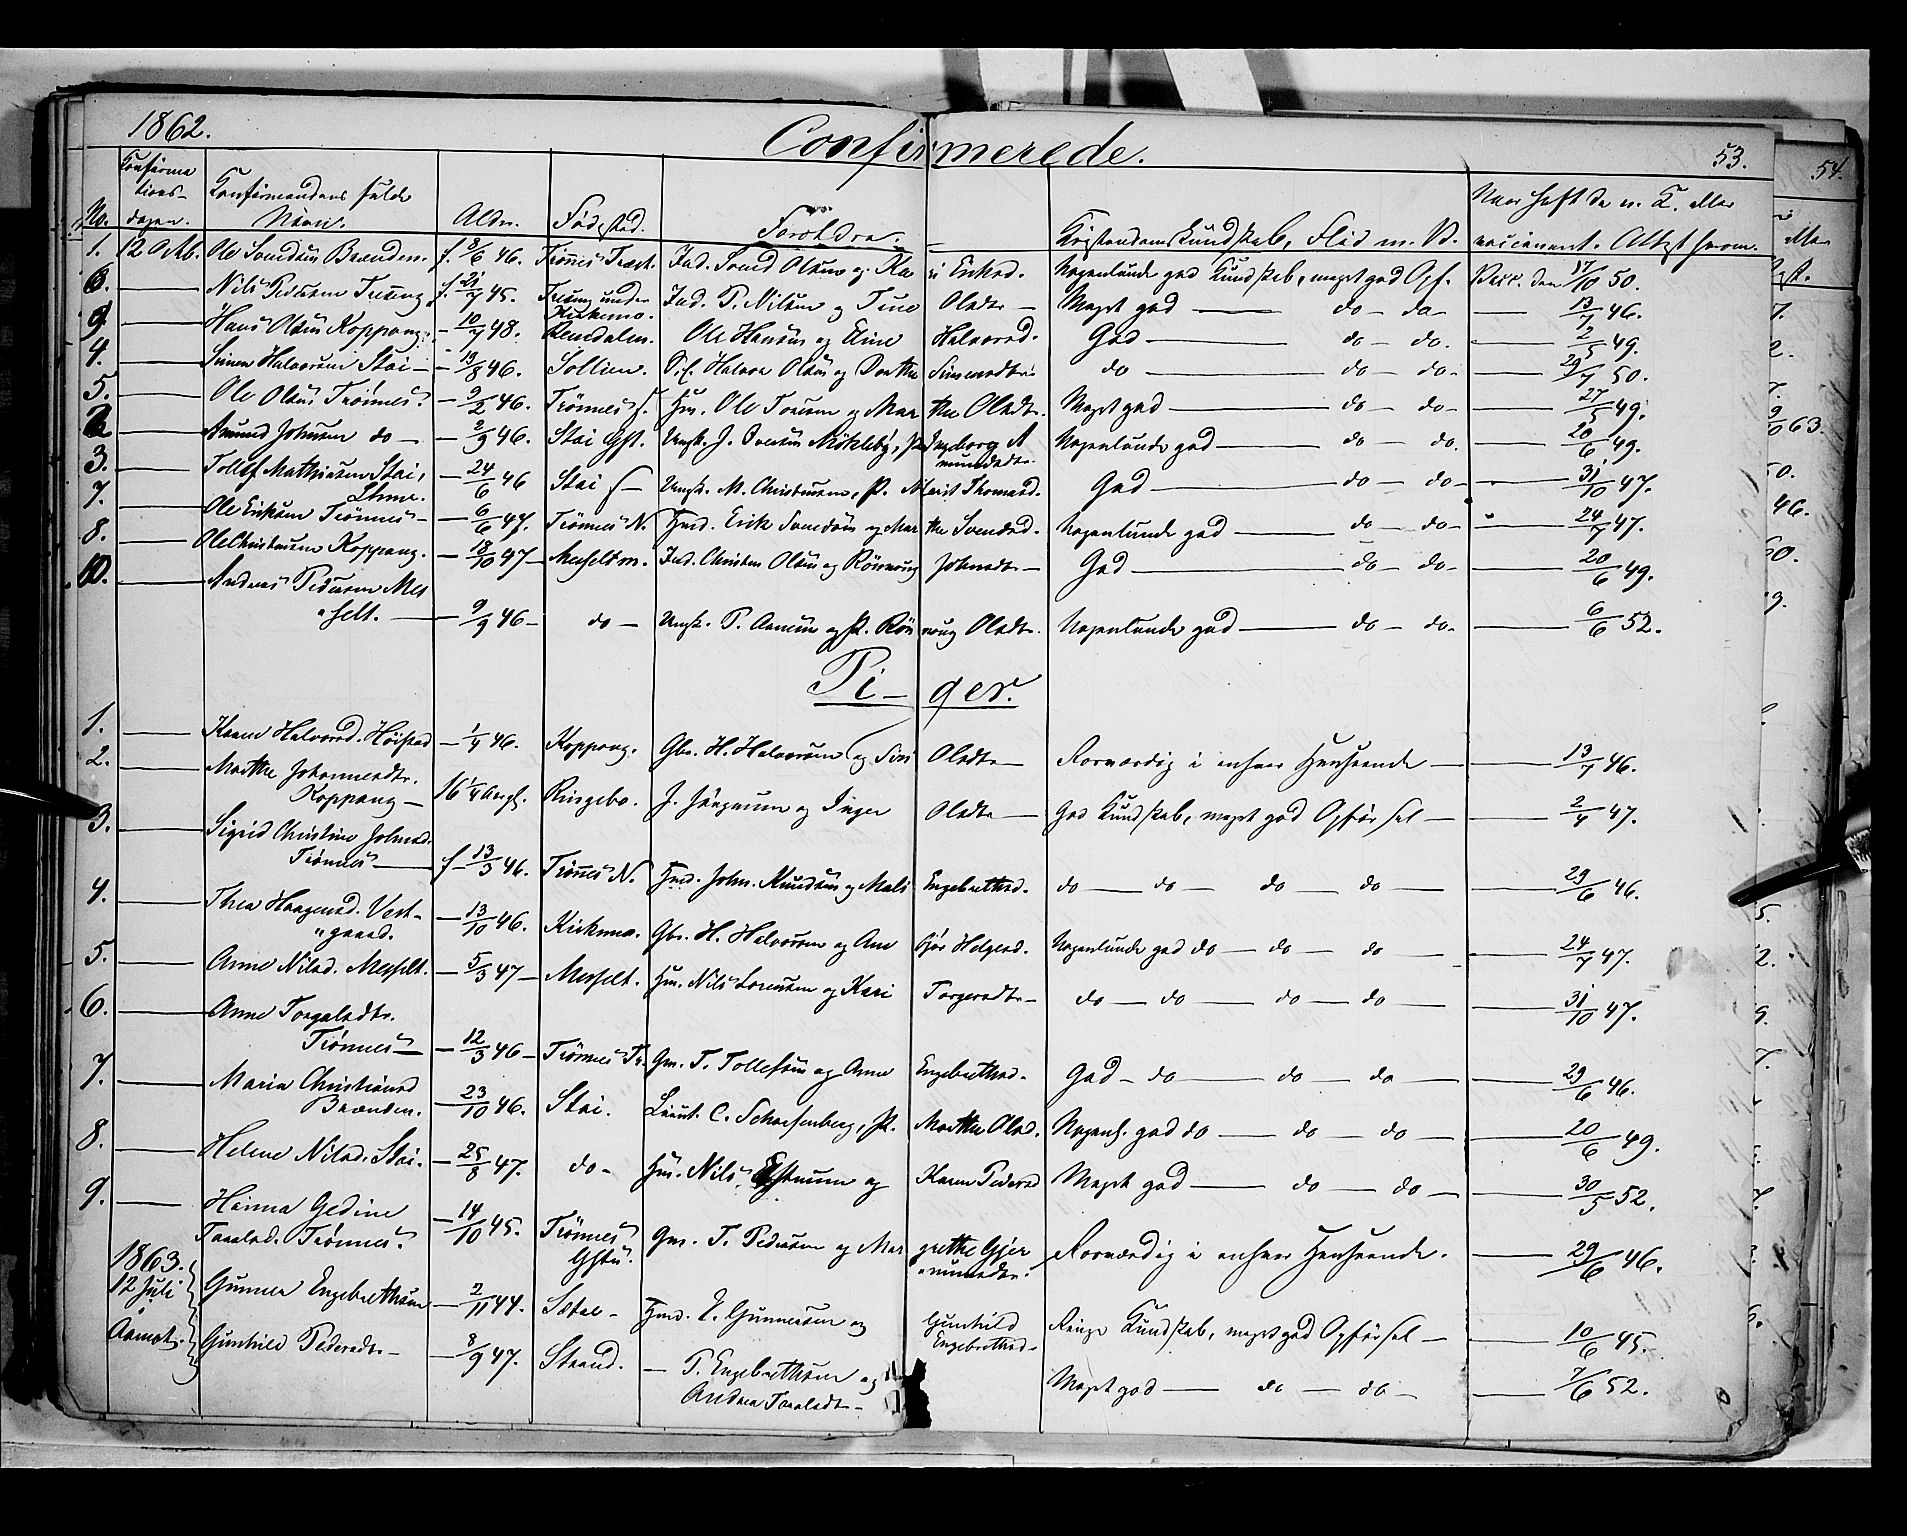 1862. Confirmerede. 53. 54.
No. Konfirmationsdagen. Konfirmandens fulde Navn. Alder. Fødested. Forældre. Kristendomskundskab, Flid m. V. Naar haft de n. K. eller vaccineret. Attest herom.
1. 12 Octb. Ole Svendsen Brænden. f. 3/6 46. Trønnes Træet. Ind. Svend Olsen og Kari Eriksd. Nogenlunde god Kundskab, meget god Opf. Vacc. den 17/10 50.
6. — Nils Pedersen Treseng. f. 21/7 45. Treseng under Kirkemo. Ind. P. Nilsen og Tine Olsdtr — Meget god — do — do — 13/7 46.
9. — Hans Olsen Koppang. — 10/7 48. Rendalen. Ole Hansen og Eline Halvorsd. God — do — do. — 2/5 49.
4. — Simen Halvorsen Stai — 19/8 46. Sollien. Halvor Olsen og Dorthe Simensdtr. do — do — do — 29/7 50.
5. — Ole Olsen Trønnes. — 9/2 46. Trønnes Hm. Ole Torersen og Marthe Olsdtr. Meget god — do — do — 27/5 49.
2. — Amund Johnsen do — — 2/9 46. Stai Gst. Ungk. J. Evensen Nökleby, P. Ingeborg Amundsdtr. Nogenlunde god — do — do. — 20/6 49.
3. — Tollef Mathisen Stai, — 24/6 46 Stai — Ungk. M. Christensen, P. Marit Thomasd. God — do — do — 31/10 47.
7. — Ole Eriksen Trønnes — — 6/6 47. Trønnes N. Hmd. Erik Svendsen og Marthe Svendsd. Nogenlunde god — do — do — 24/7 47.
8. — Ole Christensen Koppang. — 18/10 47 — Messelt m. Ind. Christen Olsen og Rönnoug Johnsdtr — God — do — do — 20/6 49.
10. — Andreas Pedersen Mes
"selt. — 9/9 46 — do — Ungk. P. Arnesen og P. Rönnoug Olsdtr. Nogenlunde god — do — do — 6/6 52.
Pi-ger.
1. — Karen Halvorsd. Höistad — 1/4 46. Koppang. Gbr. H. Halvorsen og Siri Olsdtr — Roesværdig i enhver Henseende — 13/7 46.
2. — Marthe Johannesdtr.
Koppang — 16 1/4 Ringebo. J. Jörgensen og Inger Olsdtr — God Kundskab, meget god Opførsel — 2/4 47.
3. — Sigrid Christine Johnsd.
Trönnes — f — 13/3 46. Trönnes N. Hmd. John Knudsen og Mali Engebrethsd. do — do — do — do — 29/6 46.
4. — Thea Haagensd. Vest-
"gaard. — 13/10 46. Kirkemo. Gbr. H. Halvorsen og Anbjör Helgesd. Nogenlunde god do — do — do — 24/7 47.
5. — Anne Nilsd. Messelt. — 5/3 47 — Messelt. Hm. Nils Lorentsen og Kari Torgersdtr — do — do — do — do — 31/10 47.
6. — Anne Taralsdtr.
Trönnes — — 12/3 46 — Trönnes Tr. Gm. T. Tollefsen og Anne Engebrethsd. God — do — do — do — 29/6 46.
7. — Maria Christiansd
Brænden. — 23/10 46. Stai. Lieut. C. Scharfenberg, P. Marthe Olsd. Nogenl. god do — do — do — 20/6 49.
8. — Helene Nilsd. Stai. — 25/8 47. do — Hm. Nils og Karen Pedersd Meget god — do — do — 30/5 52.
9. — Hanna Gedine
Taralsd. Trönnes. — 14/10 45. Trönnes Gst. Gm. T. Pedersen og Margrethe Gjermundsdtr. Roesværdig i enhver Henseende. — 29/6 46.
1863.
12 Juli Gunner Engebrethsen — 2/11 44. Sætre — Hmd. E. Gunnersen og Gunhild Engebrethsd — Ringe Kundskab, meget god Opførsel — 10/6 45.
Aamot. Gunhild Pedersdtr — — 8/9 47. Strand. — P. Engebrethsen og
Andrea Taralsdtr — Meget god — do — do — 7/6 52.